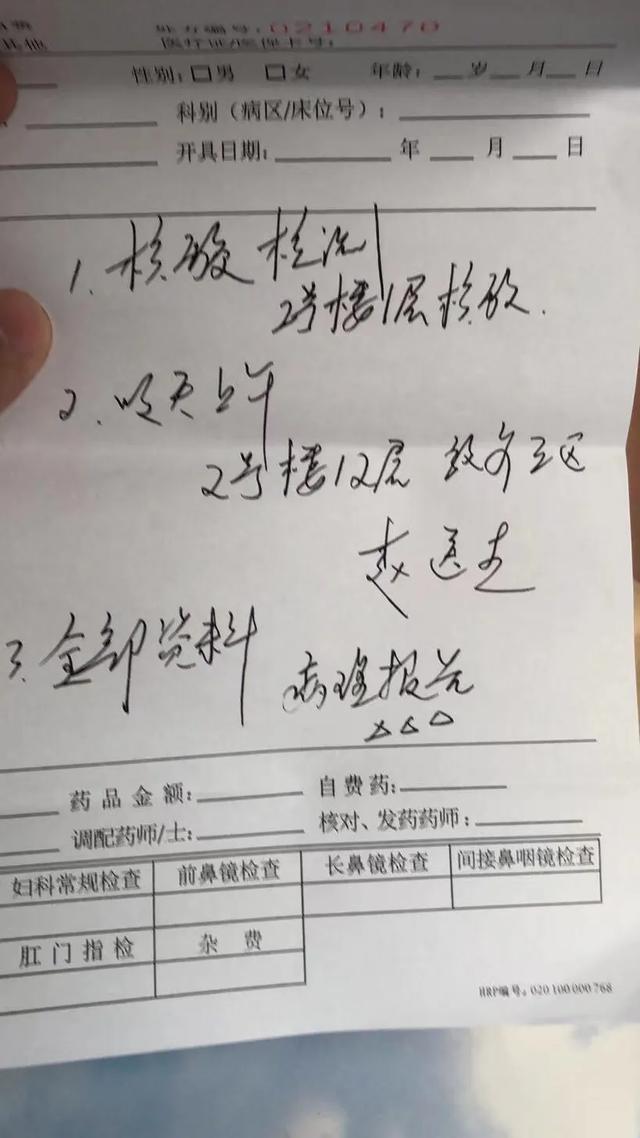 处方编号:0210470
医疗证/医保卡号:
性别:□男 □女 年龄:__岁__月__日
科别(病区/床位号):
开具日期:____年__月__日
1、核酸检测
2号楼1层核放.
2、明天上午
2号楼12层 放疗三区
赵医生
3、全部资料 病理报告
△△△
药品金额: 自费药:
调配药师/士: 核对、发药药师:
妇科常规检查 前鼻镜检查 长鼻镜检查 间接鼻咽镜检查
肛门指检 杂 费
HRP编号:020100000768